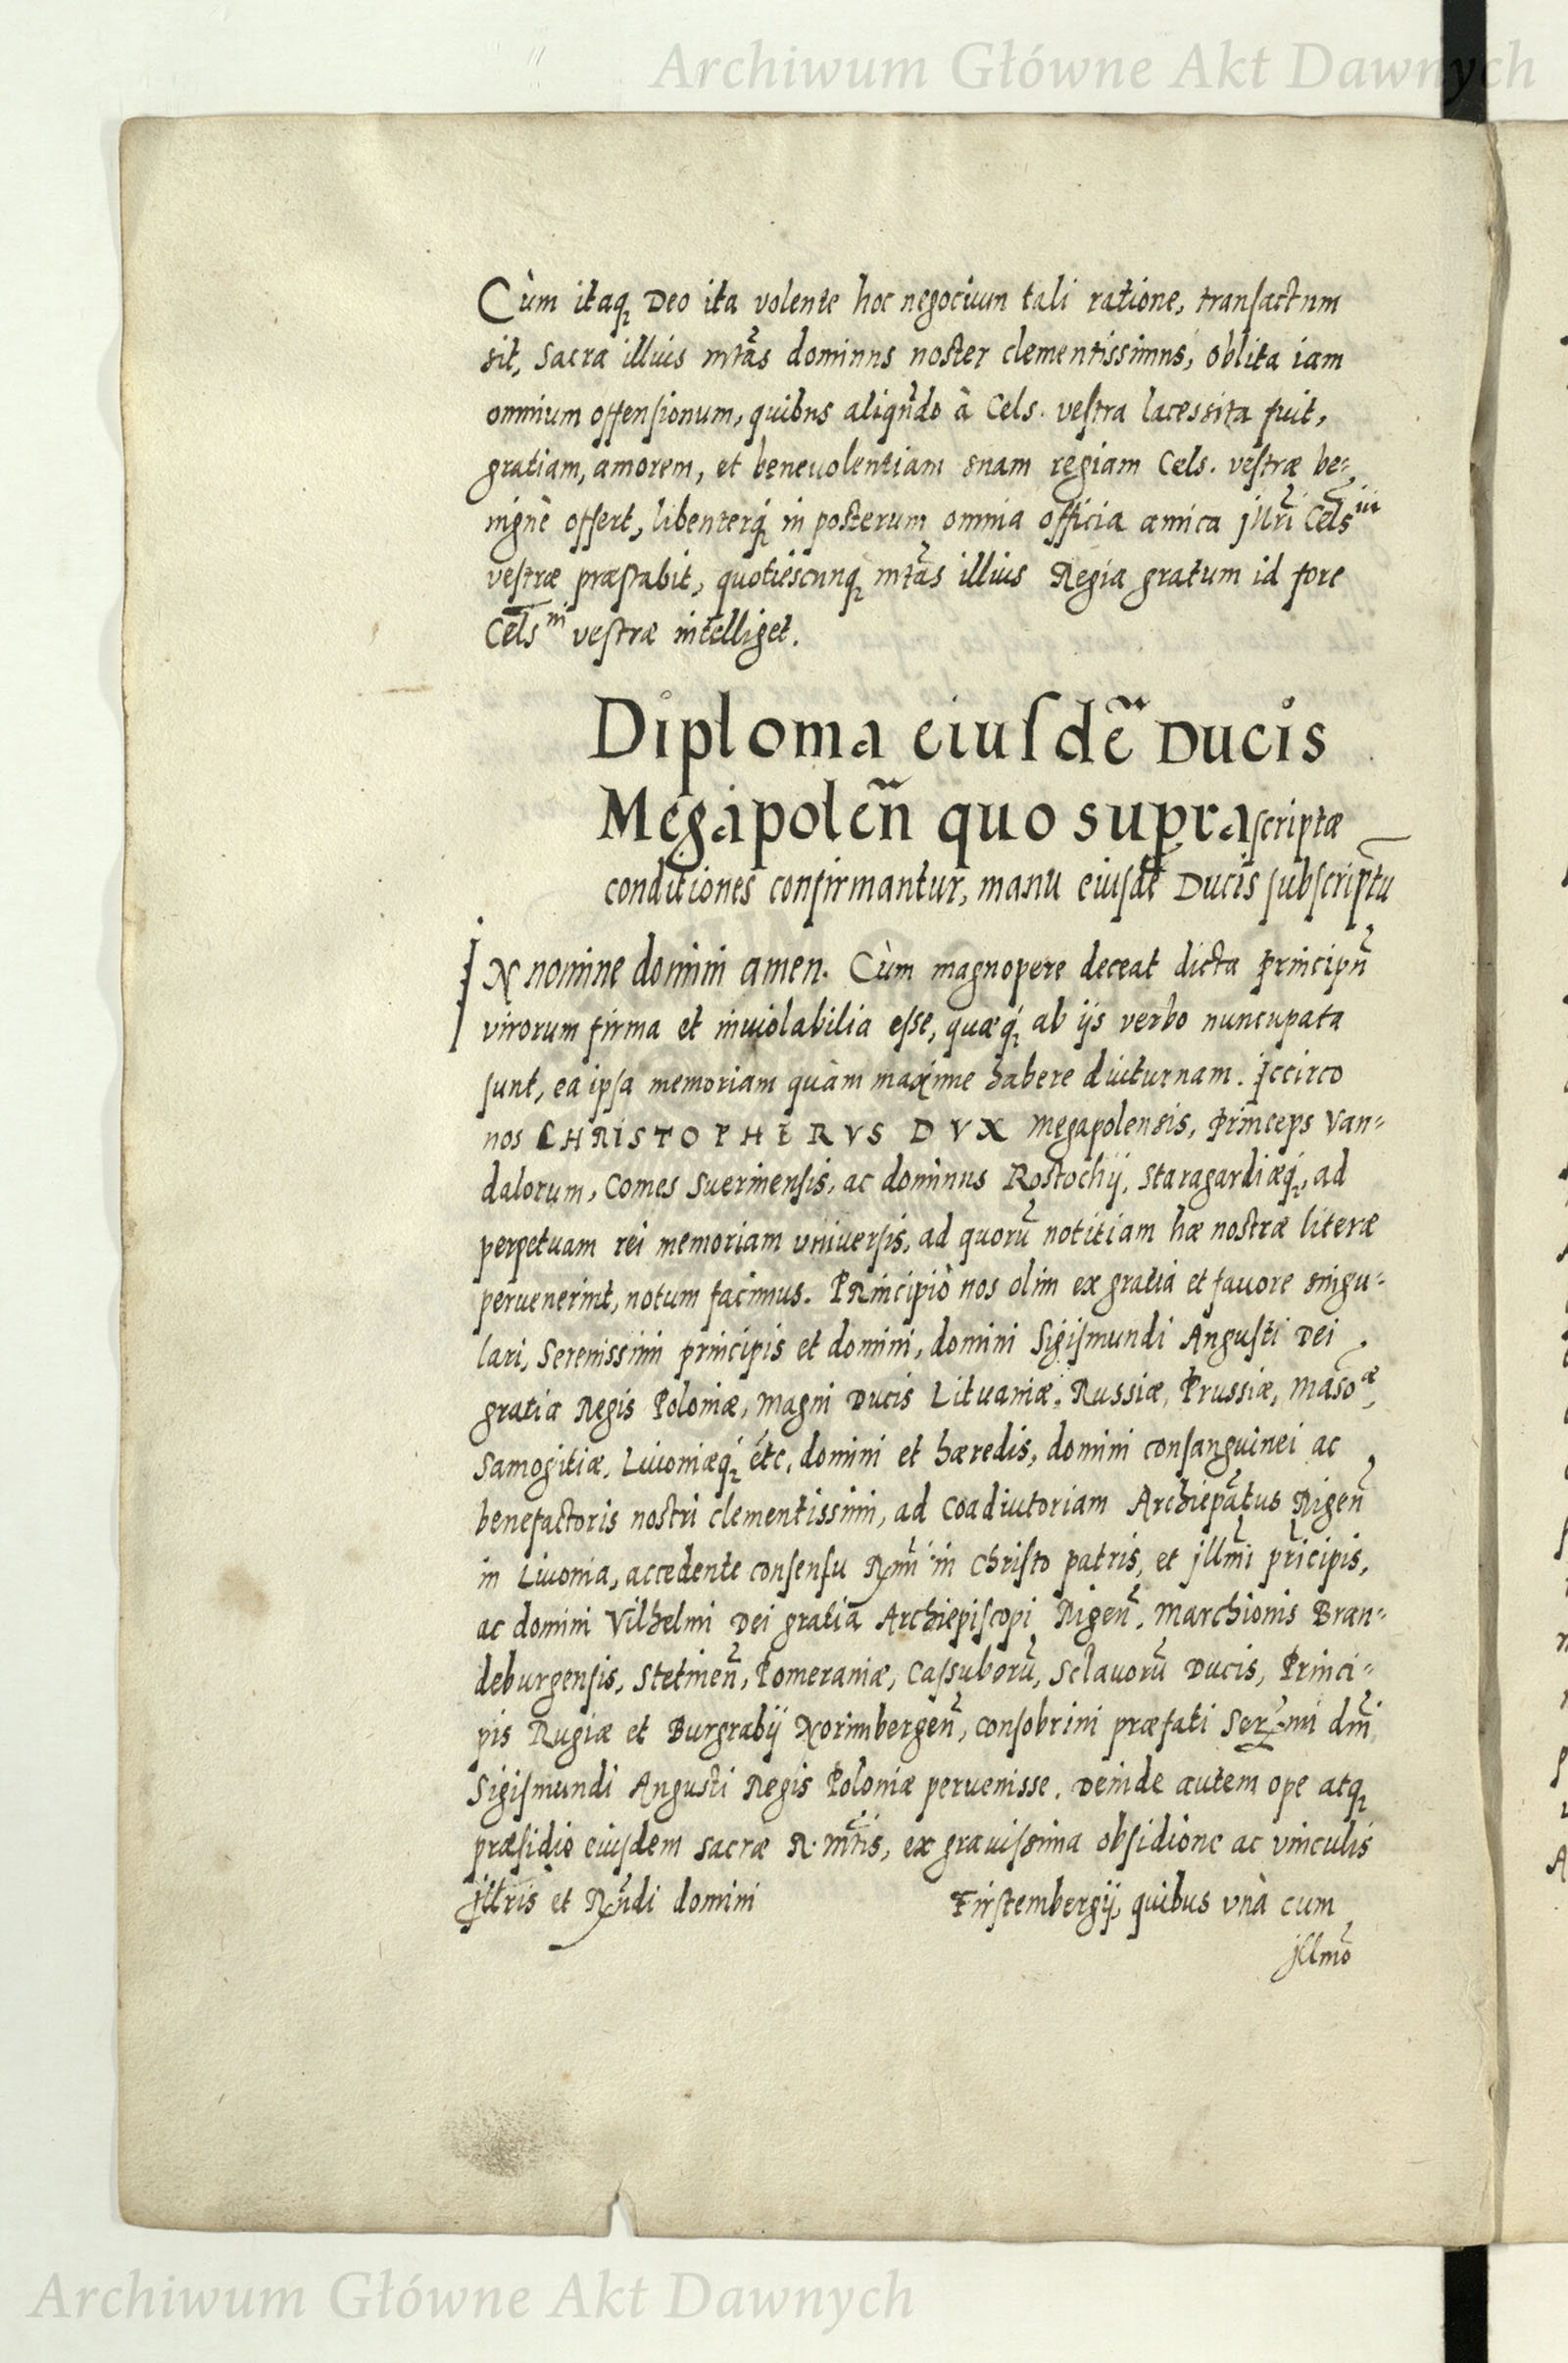 Archiwum Główne Akt Dawnych
Cùm itaq; Deo ita volente hoc negocium tali ratione, transactum
sit, Sacra illius mtas dominus noster clementissimus, oblita iam
omnium offensionum, quibus aliqñdo à Cels. vestra lacessita fuit,
gratiam, amorem, et beneuolentiam suam regiam Cels. vestræ be-
nignè offert, libenterq; in posterum omnia officia amica jllri Cels
vestræ præstabit, quotiescunq; mtas illius Regia gratum id fore
Cels ni vestræ intelliget.
Diploma eiusdẽ Ducis
Megapoleñ quo suprascriptæ
conditiones confirmantur, manu eiusdẽ Ducis subscriptũ
IN nomine domini amen. Cùm magnopere deceat dicta Principũ
virorum firma et inuiolabilia esse, quæq; ab ijs verbo nuncupata
sunt, ea ipsa memoriam quàm maxime habere diuturnam. Iccirco
nos CHRISTOPHERVS DVX Megapolensis, Princeps Van-
dalorum, Comes Suerinensis, ac dominus Rostochij, Staragardiæq;, ad
perpetuam rei memoriam vniuersis, ad quorũ notitiam hæ nostræ literæ
peruenerint, notum facimus. PRincipiò nos olim ex gratia et fauore singu-
lari, Serenissimi principis et domini, domini Sigismundi Augusti Dei
gratia Regis Poloniæ, Magni Ducis Lituaniæ, Russiæ, Prussiæ, Maso æ,
Samogitiæ, Liuoniæq; etc, domini et hæredis, domini consanguinei ac
benefactoris nostri clementissimi, ad Coadiutoriam Archiepãtus Rigeñ
in Liuonia, accedente consensu Rmi in Christo patris, et jllmi pricipis,
ac domini Vilhelmi Dei gratia Archiepiscopi Rigeñ, Marchionis Bran-
deburgensis, Stetineñ, Pomeraniæ, Cassuborũ, Sclauorũ Ducis, Princi-
pis Rugiæ et Burgrabij Norimbergeñ, consobrini præfati Sermi dni
Sigismundi Augusti Regis Poloniæ peruenisse. Deinde autem ope atq;
præsidio eiusdem Sacræ R. mtis, ex grauissima obsidione ac vinculis
jllris et Rndi domini Firstembergij, quibus vnà cum
jllmo
Archiwum Główne Akt Dawnych